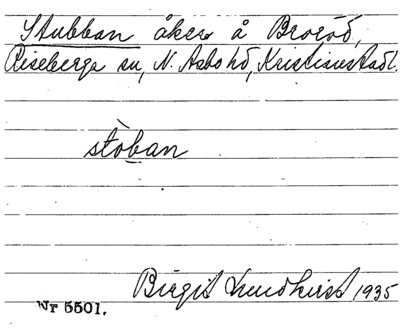 Stubban åker å Broröd,
Riseberga sn, N. Åsbo hd, Kristianstads l.
stòban
Birgit Lundkvist 1935
Nr 5501.